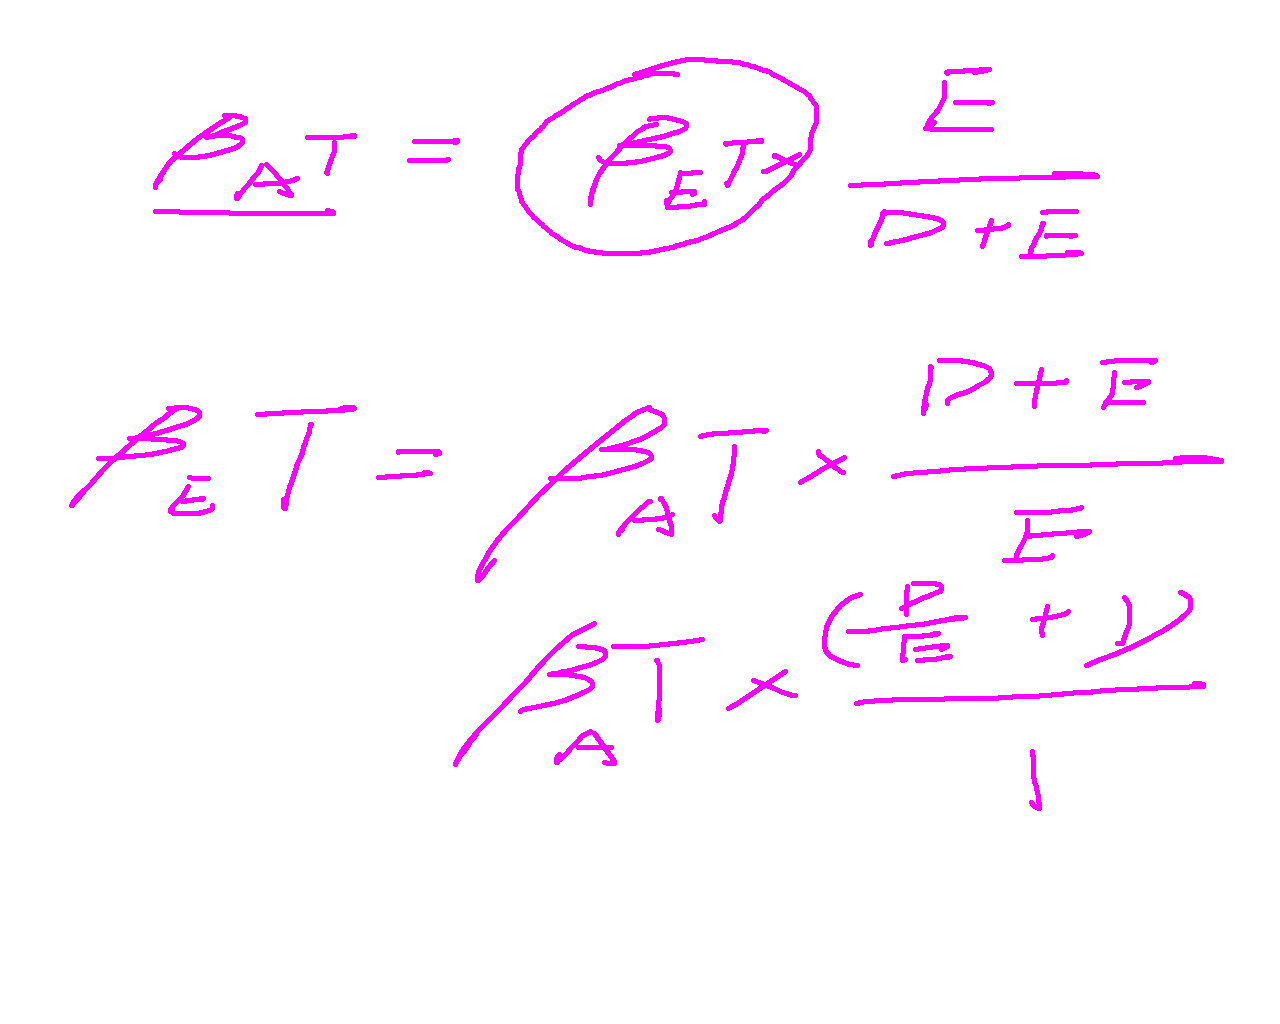 β_A T = β_E T × E / (D + E)
β_E T = β_A T × (D + E) / E
β_A T × (D/E + 1) / 1